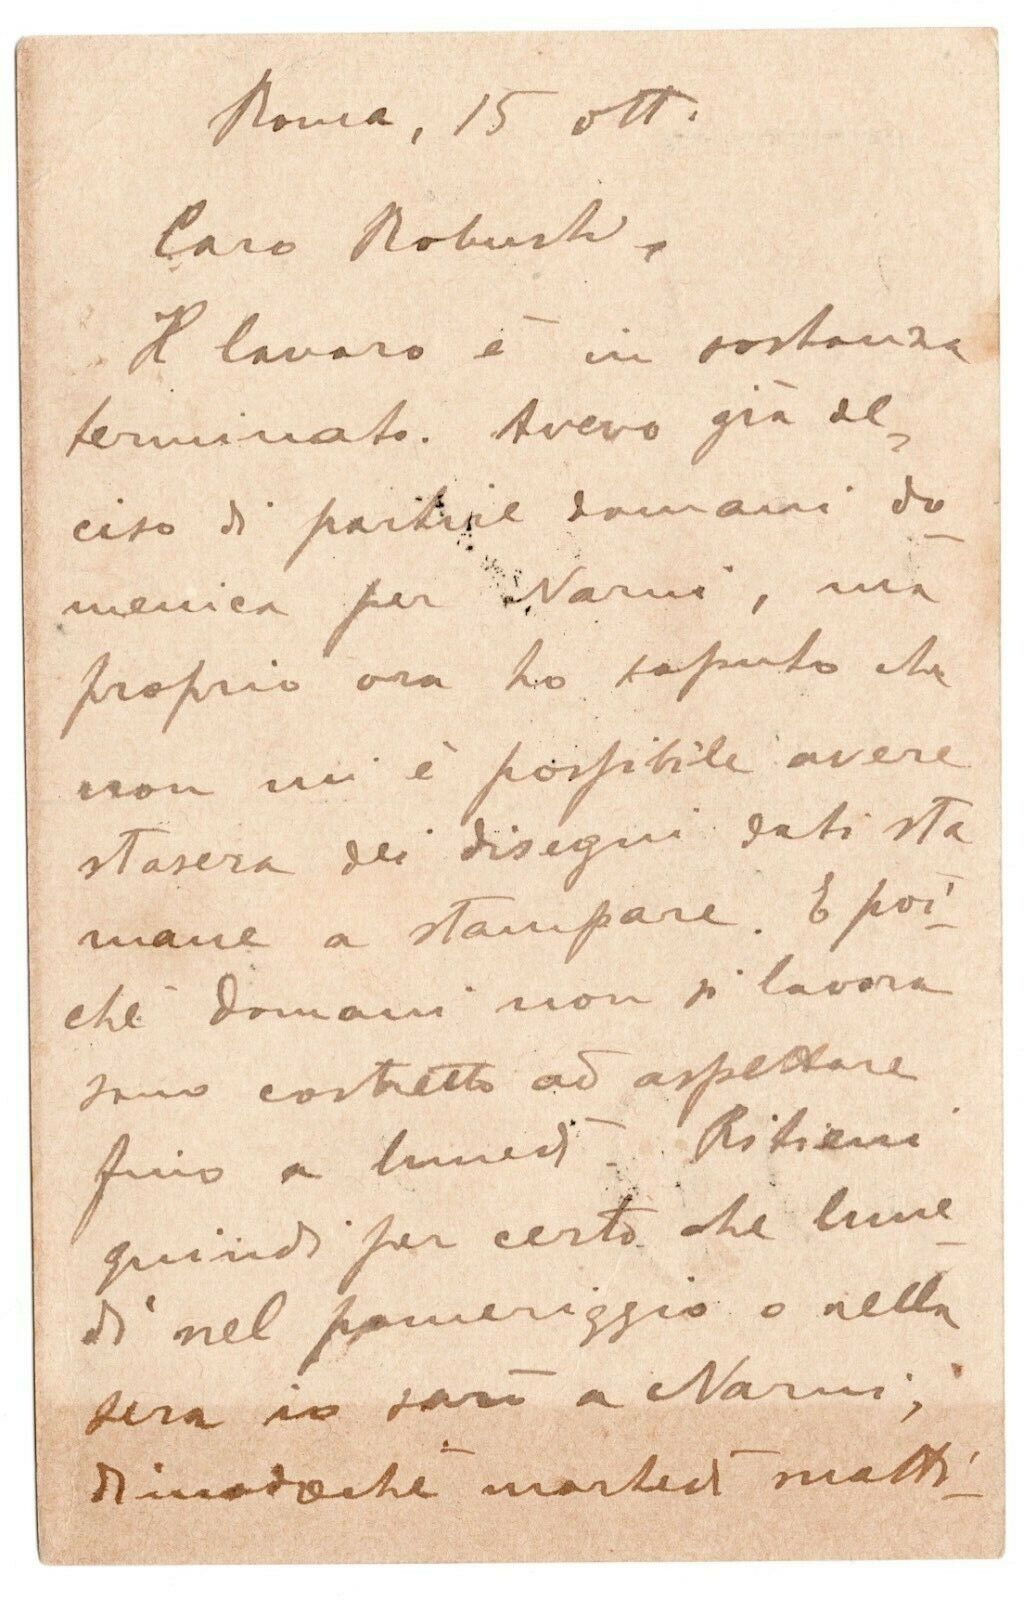 Roma, 15 ott.
Caro Robusti,
Il lavoro è in sostanza
terminato. Avevo già de-
ciso di partire domani do-
menica per Narni, ma
proprio ora ho saputo che
non mi è possibile avere
stasera dei disegni dati sta
mane a stampare. E poi-
chè domani non si lavora
sono costretto ad aspettare
fino a lunedì. Ritieni
quindi per certo che lune-
dì nel pomeriggio o nella
sera io sarò a Narni;
dimodochè martedì matti-